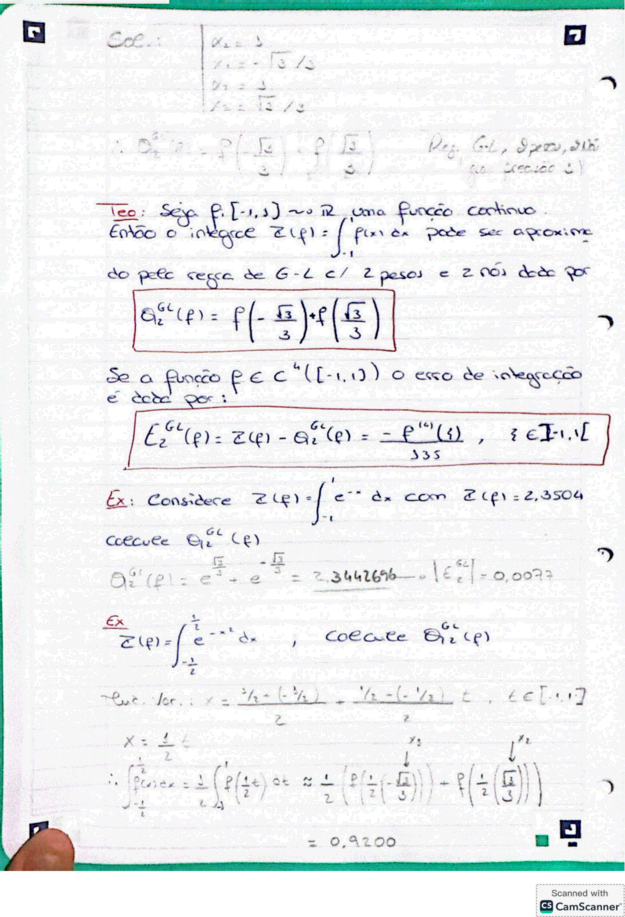 Sol.:
α₁ = 1
x₁ = -√3/3
α₂ = 1
x₂ = √3/3
∴ Q₂^GL(f) = f(-√3/3) + f(√3/3) Reg. G-L, 2 pesos, 2 nós
precisão 3)
Teo: Seja f: [-1,1] ~> ℝ uma função contínua.
Então o integral I(f) = ∫₋₁¹ f(x) dx pode ser aproxima
do pela regra de G-L c/ 2 pesos e 2 nós dada por
Q₂^GL(f) = f(-√3/3) + f(√3/3)
Se a função f ∈ C⁴([-1,1]) o erro de integração
é dado por:
E₂^GL(f) = I(f) - Q₂^GL(f) = -f⁽⁴⁾(ξ)/135 , ξ ∈ ]-1,1[
Ex: Considere I(f) = ∫₋₁¹ e^-x dx com I(f) = 2,3504
calcule Q₂^GL(f)
Q₂^GL(f) = e^(√3/3) + e^(-√3/3) = 2,3442696 |E₂^GL| = 0,0077
Ex
I(f) = ∫_(-1/2)^(1/2) e^(-x²) dx , calcule Q₂^GL(f)
x = (1/2 - (-1/2))/2 + (1/2 - (-1/2))/2 t , t ∈ [-1,1]
x = 1/2 t
x₁ x₂
∴ ∫_(-1/2)^(1/2) f(x) dx = 1/2 ∫₋₁¹ f(1/2 t) dt ≈ 1/2 (f(1/2(-√3/3)) + f(1/2(√3/3)))
= 0,9200
Scanned with
CS CamScanner